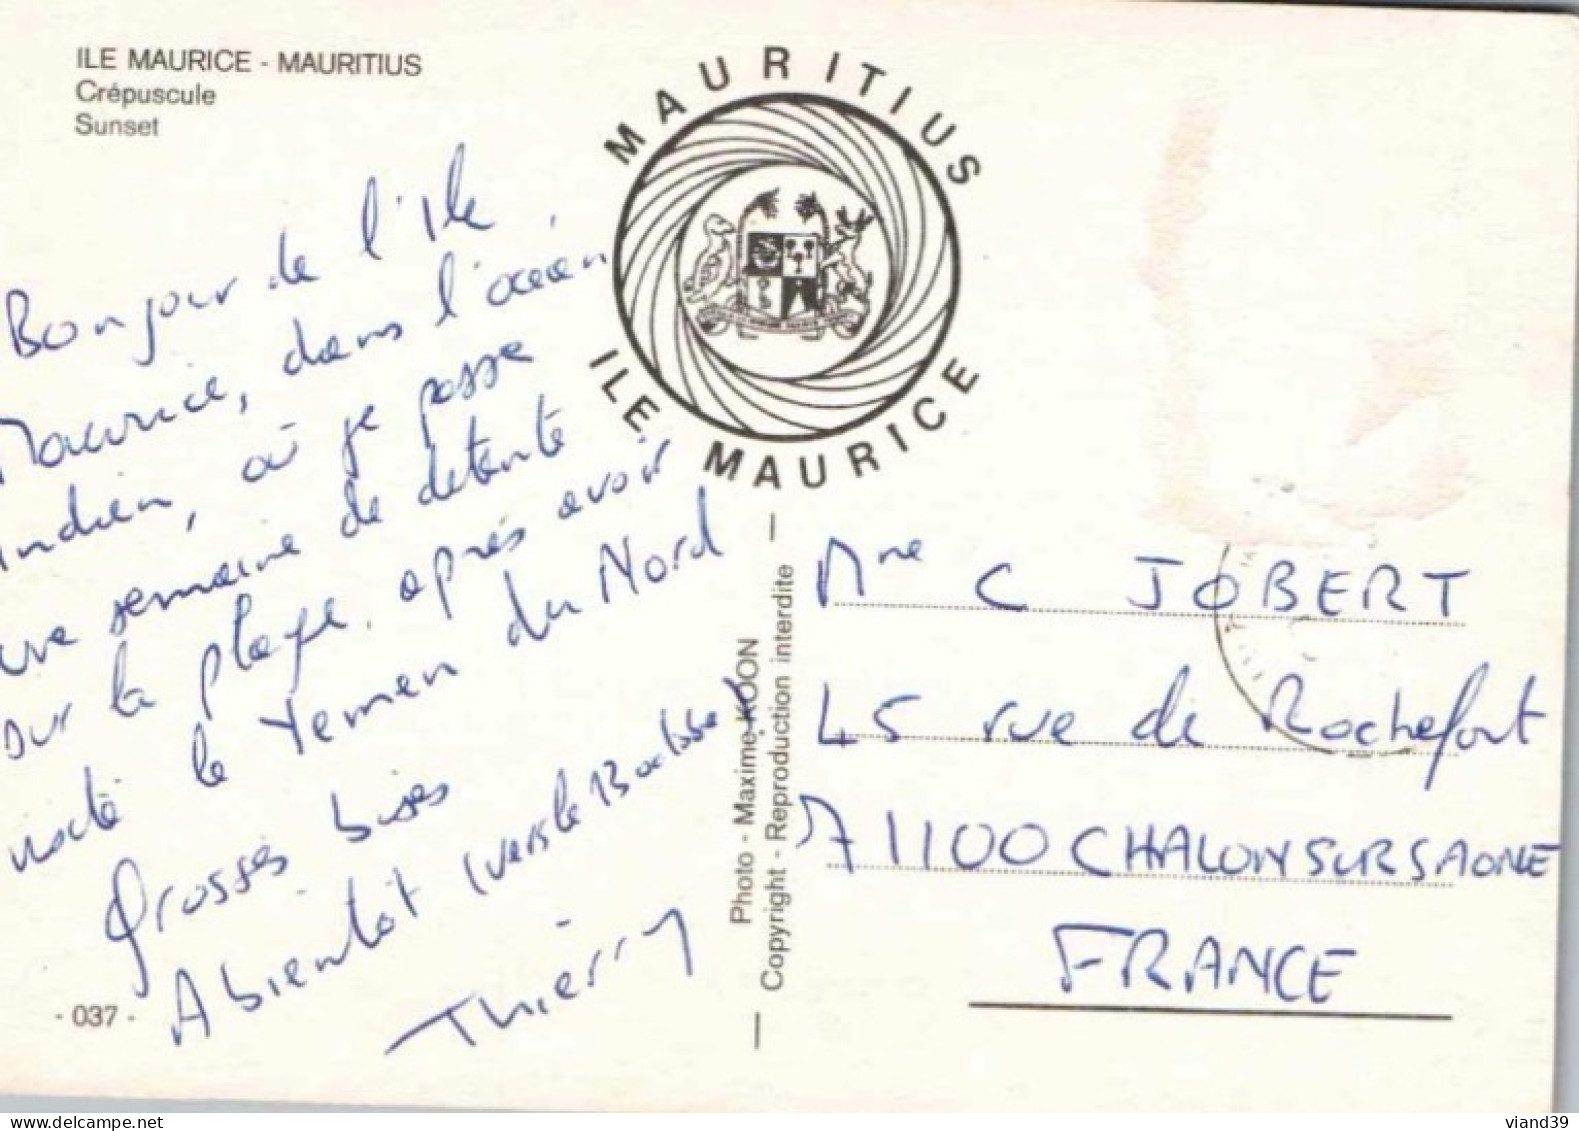 ILE MAURICE - MAURITIUS
Crépuscule
Sunset
MAURITIUS
ILE MAURICE
Bonjour de l'Ile
Maurice, dans l'océan
Indien, où je passe
une semaine de détente
sur la plage, après avoir
visité le Yemen du Nord
Grosses bises
A bientôt (vers le
Thierry
- 037 -
Photo - Maxime KOON
Copyright - Reproduction interdite
Mme C JOBERT
45 rue de Rochefort
71100 CHALON SUR SAONE
FRANCE
www.delcampe.net
viand39